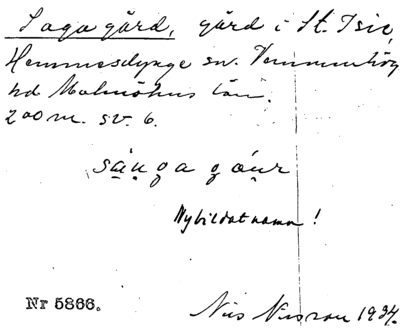 Saga gård, gård i St. Isie,
Hemmesdynge sn. Vemmenhög
hd Malmöhus län.
200 m. sv. 6.
såu̯ga góu̯r
Nybildat namn!
Nr 5866.
Nils Nilsson 1934.